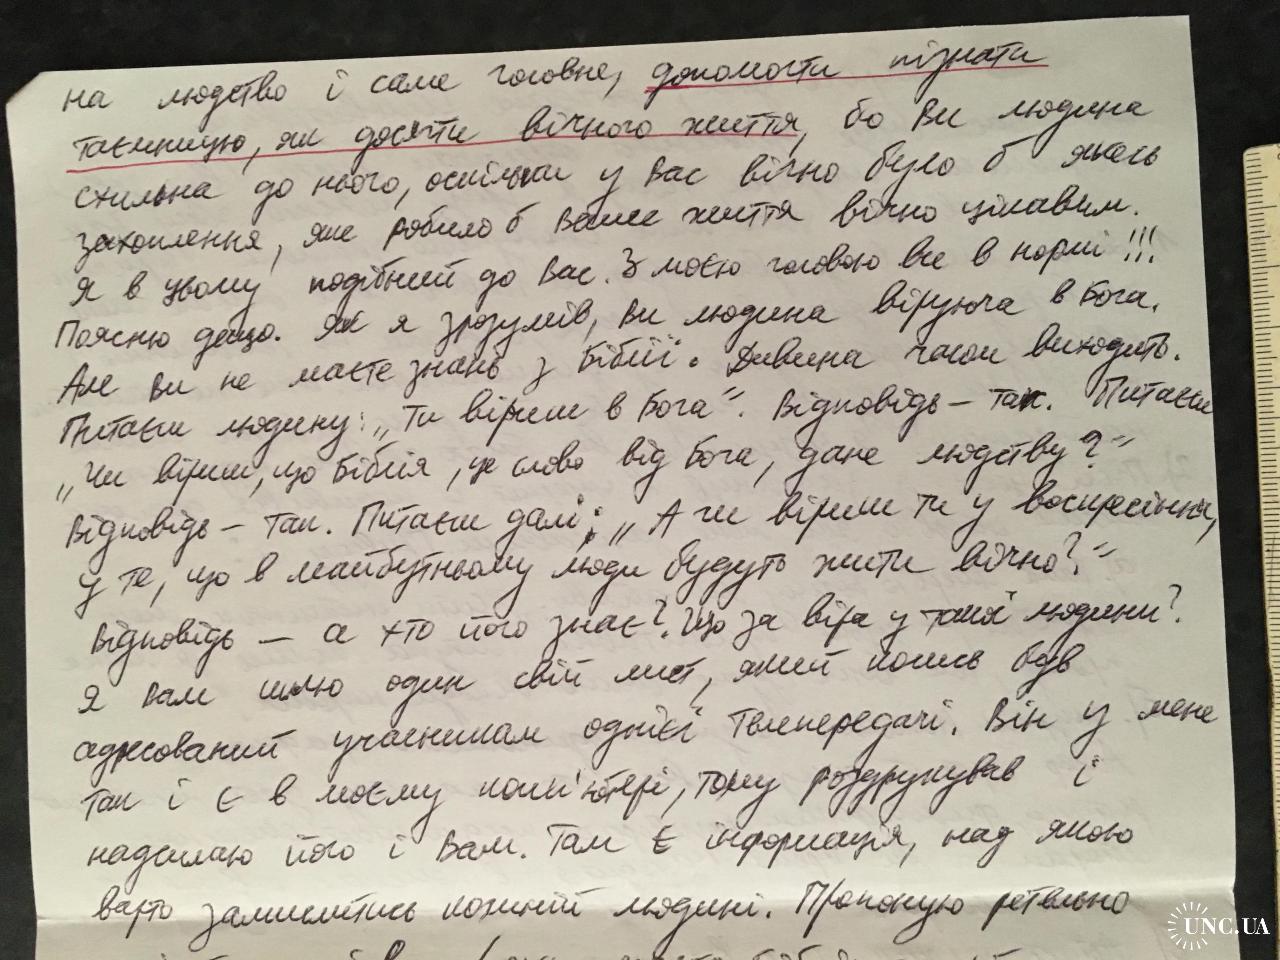 на людство і саме головне, допомогти пізнати
таємницю, як досягти вічного життя, бо Ви людина
схильна до нього, оскільки у Вас вічно було б якесь
захоплення, яке робило б Ваше життя вічно цікавим.
Я в цьому подібний до Вас. З моєю головою все в нормі!!!
Поясню дещо. Як я зрозумів, Ви людина віруюча в Бога.
Але Ви не маєте знань з Біблії. Дивина часом виходить.
Питаєш людину: „Ти віриш в Бога". Відповідь – так. Питаєш
„Чи віриш, що Біблія, це слово від Бога, дане людству?"
Відповідь – так. Питаєш далі: „А чи віриш ти у воскресіння,
у те, що в майбутньому люди будуть жити вічно?"
Відповідь – а хто його знає? Що за віра у такої людини?
Я Вам шлю один свій лист, який колись був
адресований учасникам однієї телепередачі. Він у мене
так і є в моєму комп'ютері, тому роздрукував і
надсилаю його і Вам. Там є інформація, над якою
варто замислитись кожній людині. Пропоную ретельно
UNC.UA